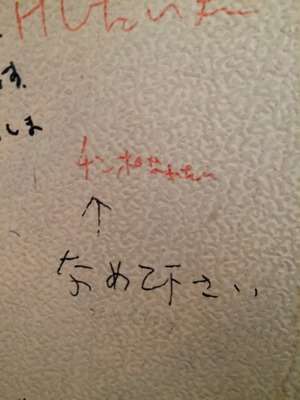 Hしたいなー
す.
しま
チンポなめたい
↑
なめて下さい